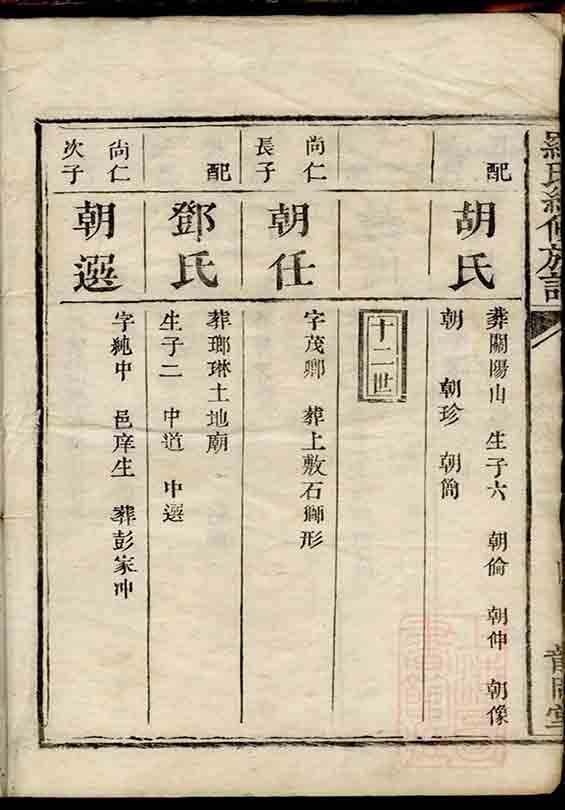 配
胡氏
葬關陽山 生子六 朝倫 朝仲 朝像
朝 朝珍 朝簡
十二世
尚仁
長子
朝任
字茂卿 葬上敷石獅形
配
鄧氏
葬瑯琳土地廟
生子二 中道 中選
尚仁
次子
朝選
字純中 邑庠生 葬彭家冲